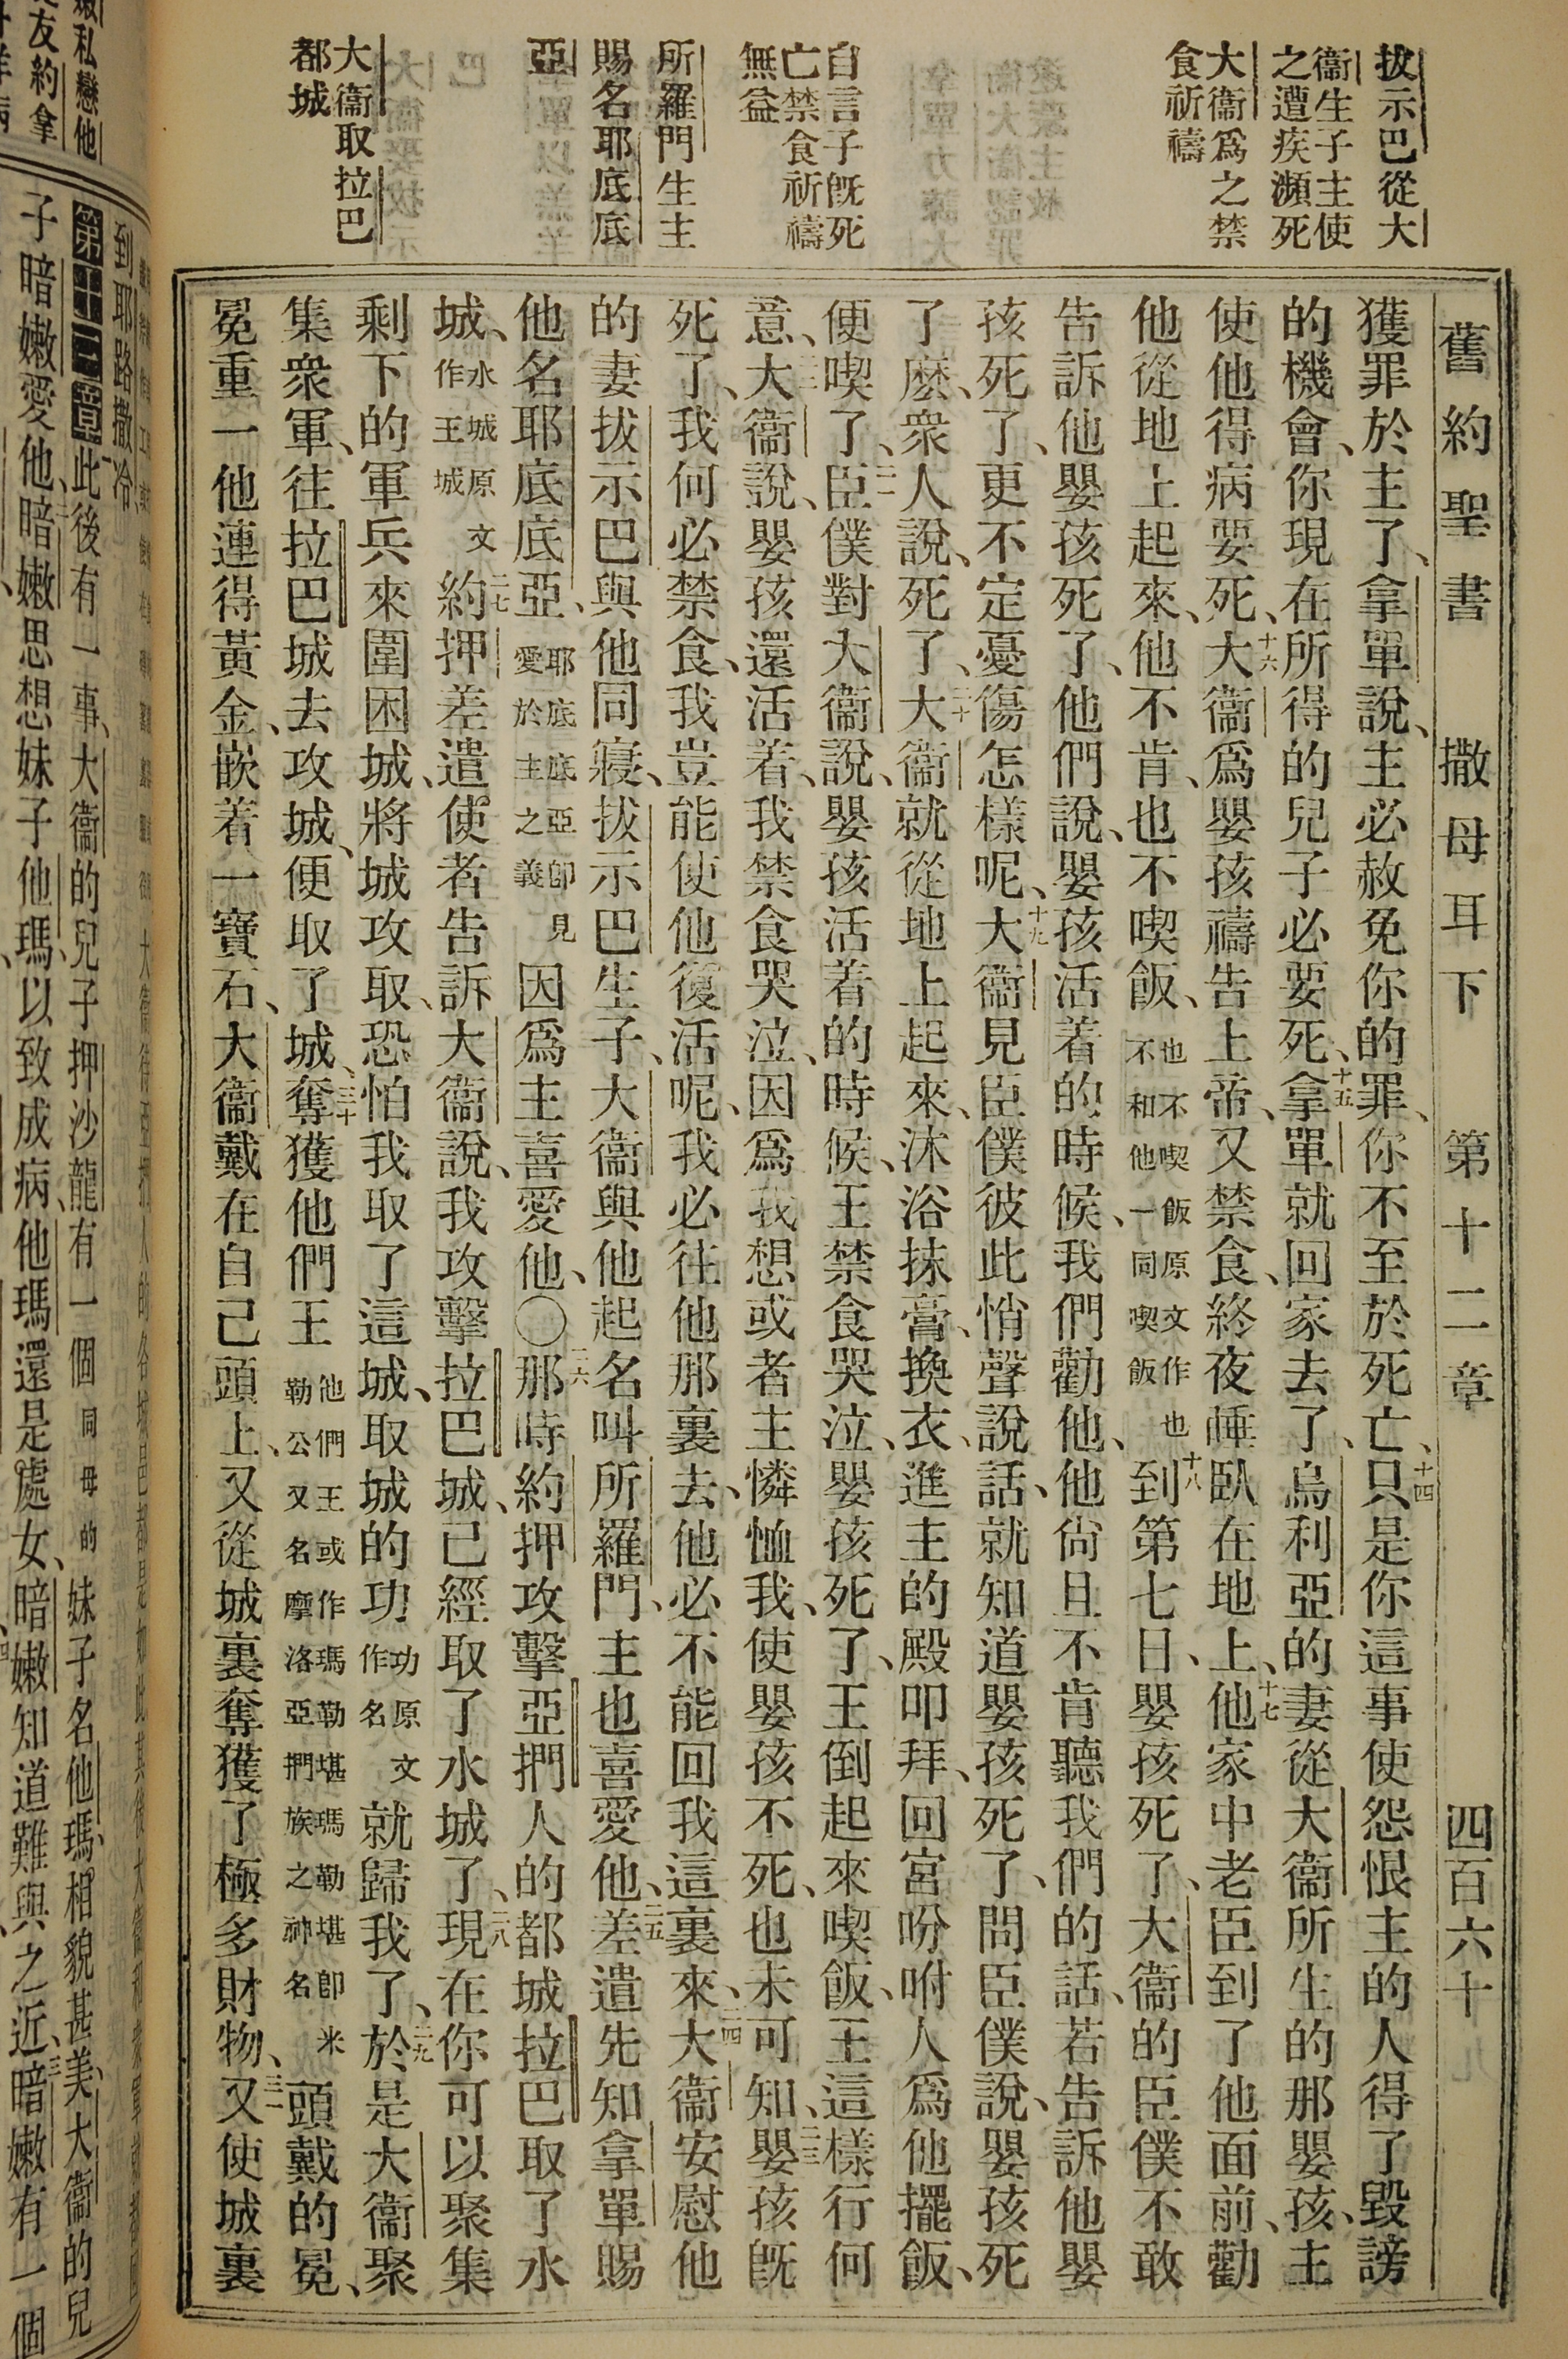 舊約聖書 撒母耳下 第十二章 四百六十
拔示巴從大
衞生子主使
之遭疾瀕死
大衞爲之禁
食祈禱
自言子既死
亡禁食祈禱
無益
所羅門生主
賜名耶底底
亞
大衞取拉巴
都城
獲罪於主了、拿單說、主必赦免你的罪、你不至於死亡、十四只是你這事使怨恨主的人得了毀謗
的機會、你現在所得的兒子必要死、十五拿單就回家去了、烏利亞的妻從大衞所生的那嬰孩、主
使他得病要死、十六大衞爲嬰孩禱告上帝、又禁食、終夜睡臥在地上、十七他家中老臣到了他面前、勸
他從地上起來、他不肯、也不喫飯、也不喫飯原文作也不和他一同喫飯十八到第七日、嬰孩死了、大衞的臣僕不敢
告訴他嬰孩死了、他們說、嬰孩活着的時候、我們勸他、他尙且不肯聽我們的話、若告訴他嬰
孩死了、更不定憂傷怎樣呢、十九大衞見臣僕彼此悄聲說話、就知道嬰孩死了、問臣僕說、嬰孩死
了麽、衆人說、死了、二十大衞就從地上起來、沐浴抹膏、換衣、進主的殿叩拜、回宮吩咐人爲他擺飯、
便喫了、二一臣僕對大衞說、嬰孩活着的時候、王禁食哭泣、嬰孩死了、王倒起來喫飯、王這樣行何
意、二二大衞說、嬰孩還活着、我禁食哭泣、因爲我想或者主憐恤我、使嬰孩不死、也未可知、二三嬰孩既
死了、我何必禁食、我豈能使他復活呢、我必往他那裏去、他必不能回我這裏來、二四大衞安慰他
的妻拔示巴與他同寢、拔示巴生子、大衞與他起名叫所羅門、主也喜愛他、二五差遣先知拿單賜
他名耶底底亞、耶底底亞卽見愛於主之義因爲主喜愛他、〇二六那時約押攻擊亞捫人的都城拉巴取了水
城、水城原文作王城二七約押差遣使者告訴大衞說、我攻擊拉巴城、已經取了水城了、二八現在你可以聚集
剩下的軍兵來圍困城、將城攻取、恐怕我取了這城、取城的功功原文作名就歸我了、二九於是大衞聚
集衆軍、往拉巴城去攻城、便取了城、三十奪獲他們王他們王或作瑪勒堪瑪勒堪卽米勒公又名摩洛亞捫族之神名頭戴的冕、
冕重一他連得黃金、嵌着一寶石、大衞戴在自己頭上、又從城裏奪獲了極多財物、三一又使城裏
到耶路撒冷
第十三章此後有一事、大衞的兒子押沙龍有一個同母的妹子名他瑪、相貌甚美、大衞的兒
子暗嫩愛他、二暗嫩思想妹子他瑪、以致成病、他瑪還是處女、暗嫩知道難與之近、三暗嫩有一個